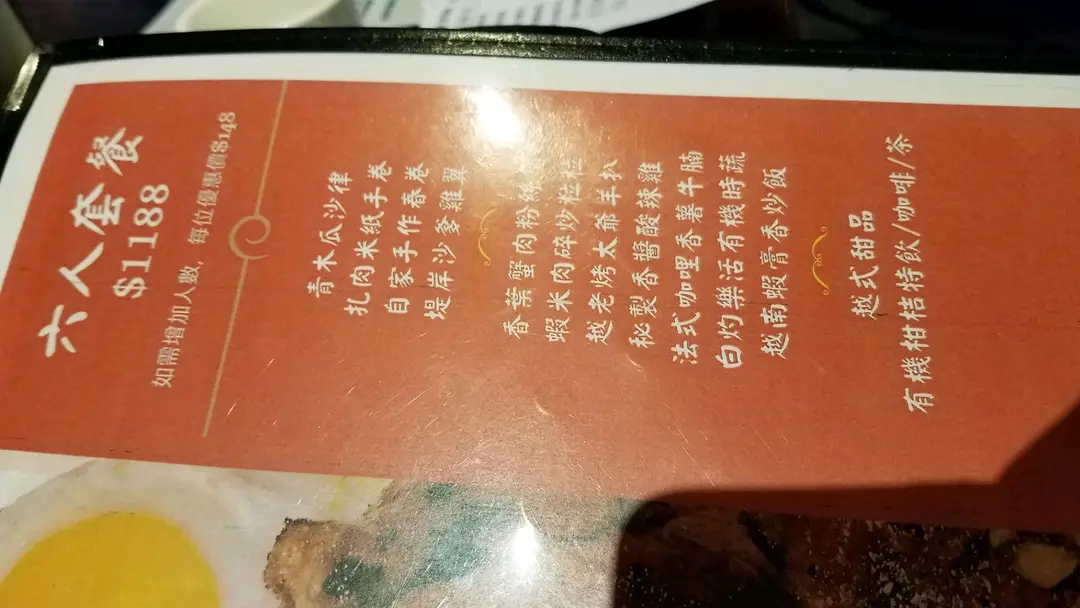 六人套餐
$1188
如需增加人數，每位優惠價$148
青木瓜沙律
扎肉米紙手卷
自家手作春卷
堤岸沙爹雞翼
香葉蟹肉粉絲
蝦米肉碎炒粒粒
越老烤太爺羊扒
秘製香醬酸辣雞
法式咖哩香薯牛腩
白灼樂活有機時蔬
越南蝦膏香炒飯
越式甜品
有機柑桔特飲/咖啡/茶